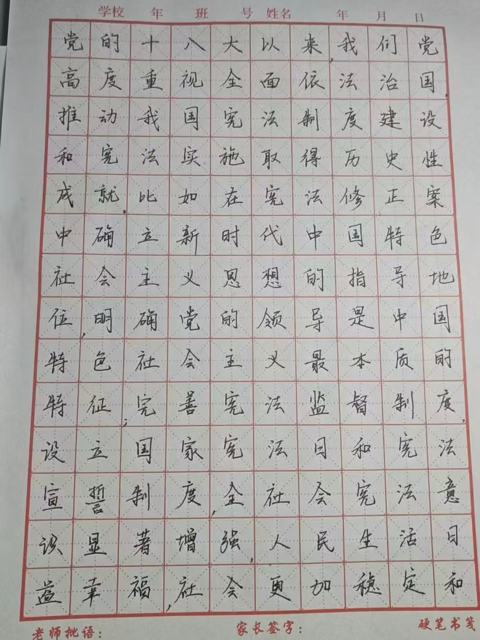 学校 年 班 号 姓名 年 月 日
党的十八大以来,我们党
高度重视全面依法治国,
推动我国宪法制度建设
和宪法实施取得历史性
成就,比如在宪法修正案
中确立新时代中国特色
社会主义思想的指导地
位,明确党的领导是中国
特色社会主义最本质的
特征;完善宪法监督制度,
设立国家宪法日和宪法
宣誓制度,全社会宪法意
识显著增强,人民生活日
益幸福,社会更加稳定和
老师批语: 家长签字: 硬笔书笺